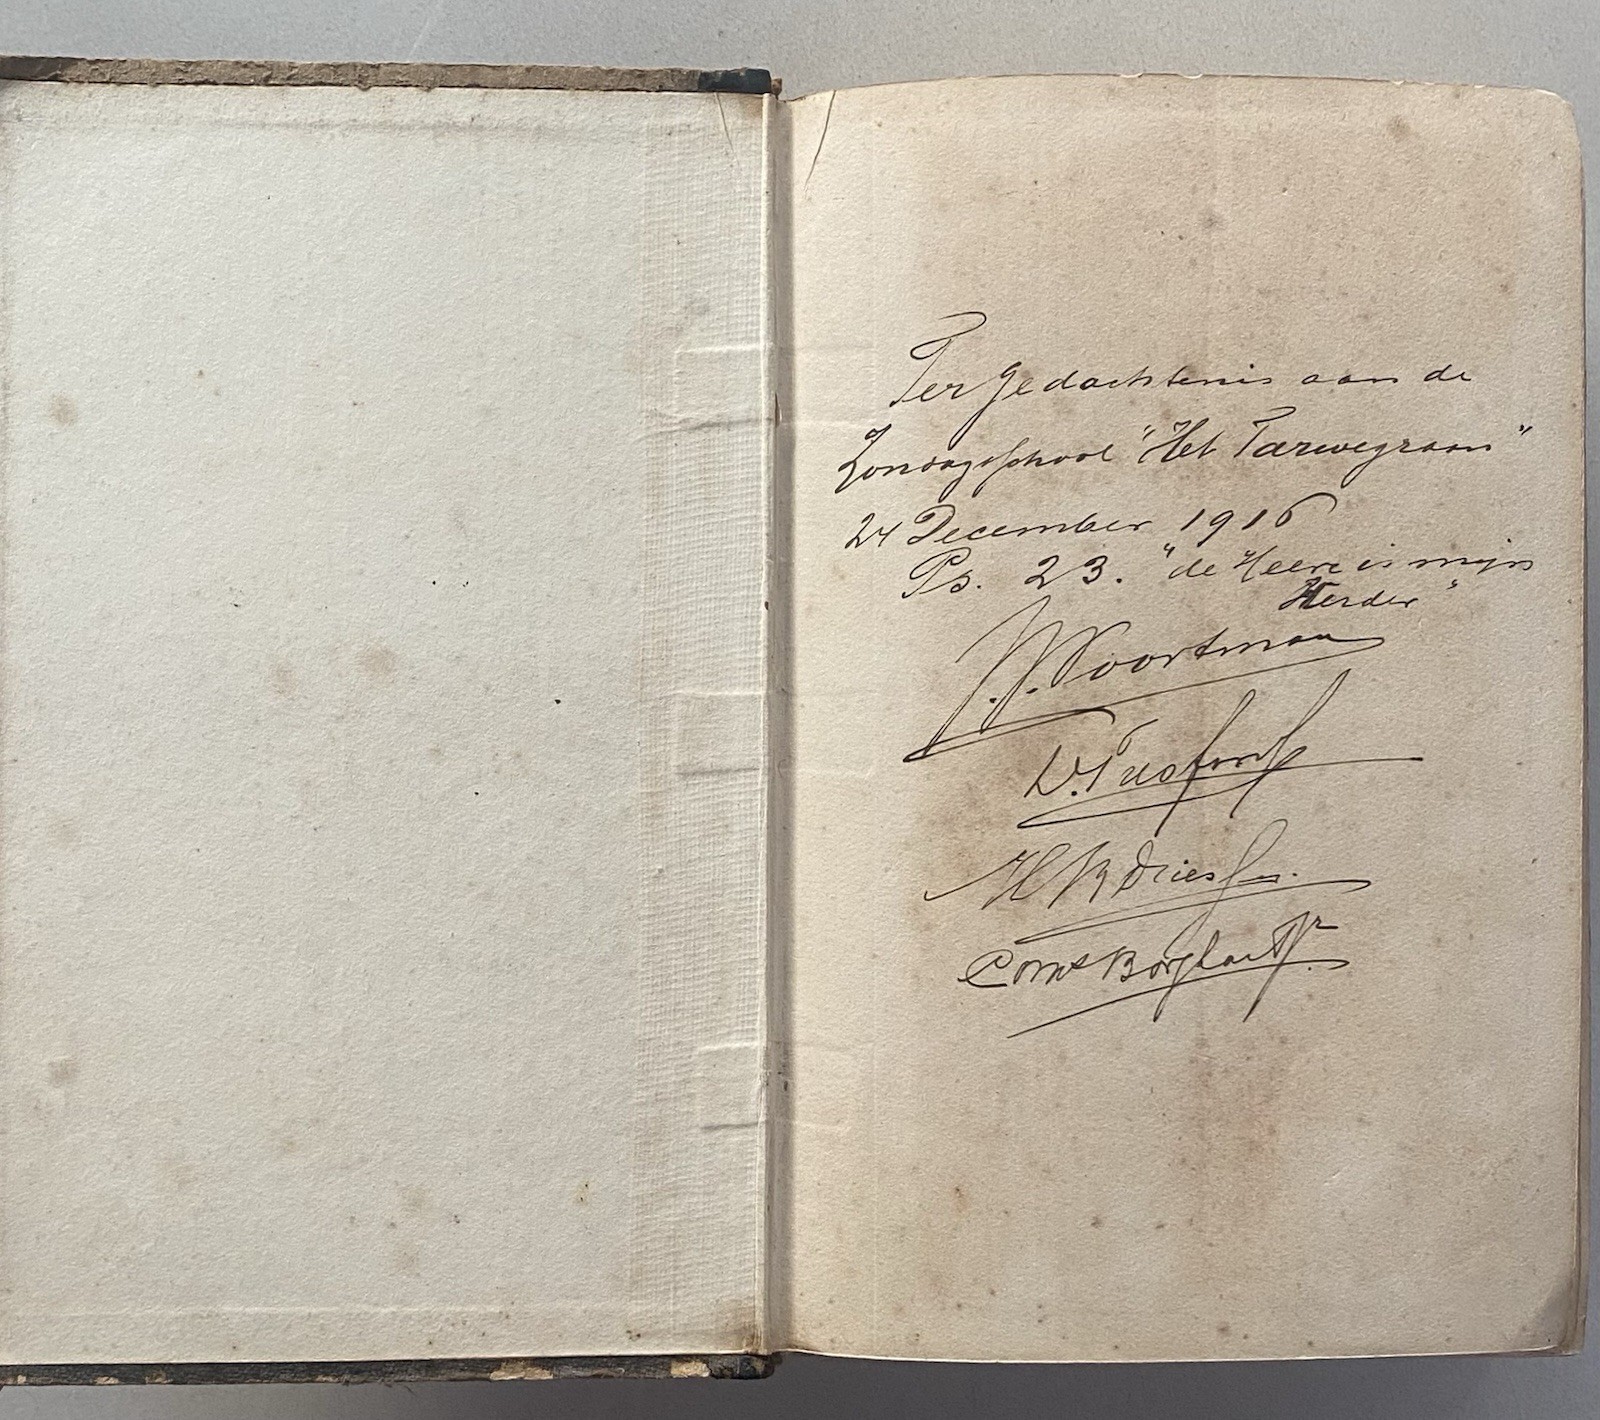 Ter Gedachtenis aan de
Zondagsschool "Het Tarwegraan"
24 December 1916
Ps. 23. "de Heere is mijn
Herder"
J. J. Poortman
D.
H
Corns